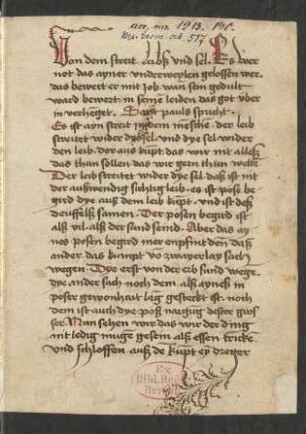 acc. ms. 1913. 190.
Ms. germ. oct. 577
Von dem streit leibß und sel. Es wer
not das ayner underweylen gelossen wer.
das bewert er mit Job. wan sein gedult
ward bewert in seinē leiden das got yber
in verhēget. Sant pauls spricht.
Es ist ayn streit in dem mensche. der leib
streitet wider dye sel und dye sel wider
den leib. dor aus kūpt das wir nit alleß
das than sollen das wir gern thun wolte
Der leib streitet wider dye sel daß ist mit
der außwendig sichtig leib. es ist pose be
gird dye auß dem leib kūpt. und ist deß
deuffelß samen. Der posen begird ist
alß vil. alß der sund seind. Aber das ay
nes posen begird mer enpfint den daß
ander. das kumpt vo zwayerlay sach
wegen. Dye erst von der erb sund wege.
dye ander sach noch dem alß ayneß in
poser gewonhait lāg gesteckt ist. noch
dem ist auch dye poß naigūg dester gros
ser. Nun sehen wir das wir der ding
nit ledig mugē gesein alß essen trickē
und schloffen. auß de kūpt ey dreger
Ex
Biblioth.
Regia